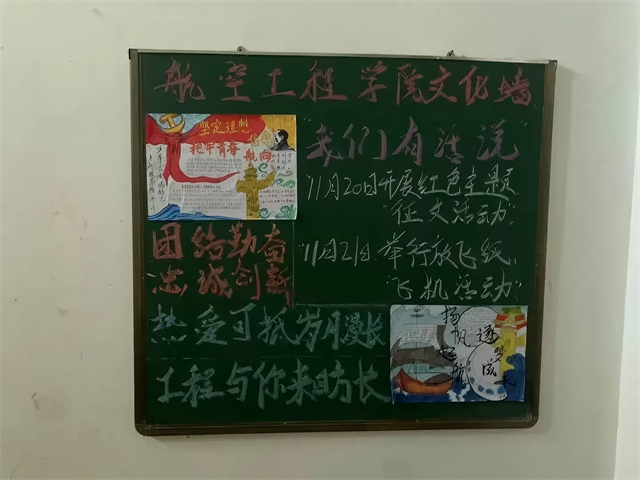 航空工程学院文化墙
坚定理想
把牢青春
航向
我们有话说
11月20日开展红色主题
"征文活动"
团结勤奋
忠诚创新
11月21日举行放飞纸
飞机活动"
热爱可抵岁月漫长
工程与你来日方长
扬帆起航
逐梦成长